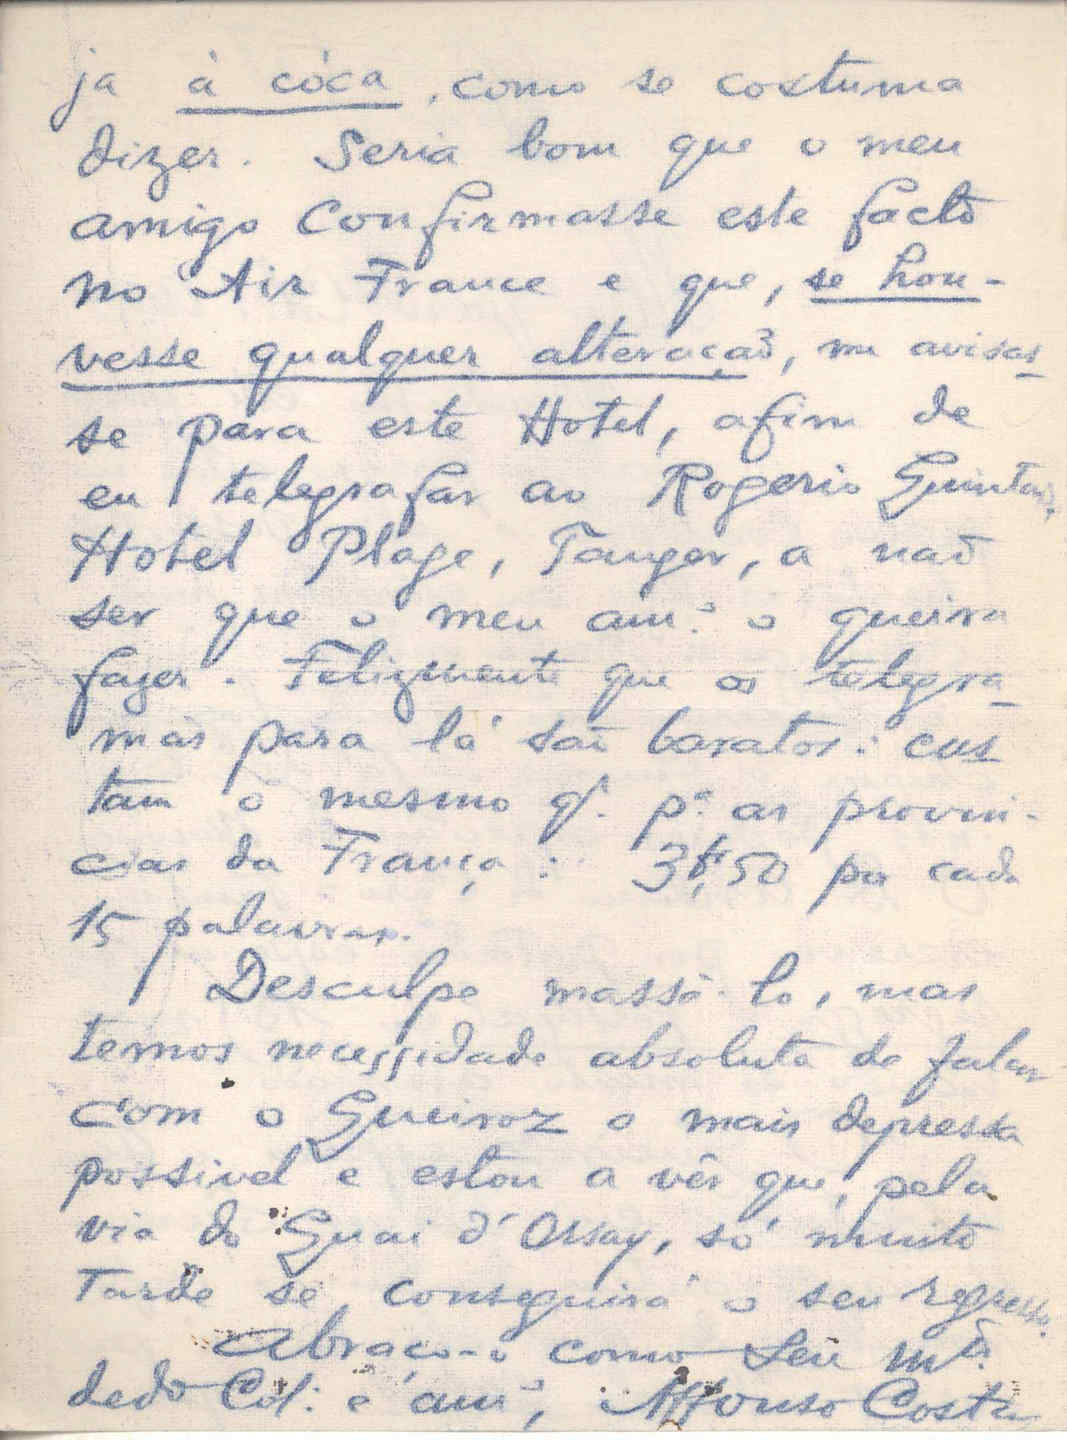 ja à cóca, como se costuma
dizer. Seria bom que o meu
amigo confirmasse este facto
no Air France e que, se hou-
vesse qualquer alteração, m'avisas-
se para este Hotel, afim de
eu telegrafar ao Rogerio Quintas,
Hotel Plage, Tanger, a não
ser que o meu amº. o queira
fazer. Felizmente que os telegra-
mas para lá são baratos: cus-
tam o mesmo q. pª as provin-
cias da França: 3f,50 por cada
15 palavras.
Desculpe massá-lo, mas
temos necessidade absoluta de falar
com o Queiroz o mais depressa
possivel e estou a vêr que, pela
via do Quai d'Orsay, só muito
tarde se conseguirá o seu regresso.
Abraço-o como seu mtº.
dedº Col. e amº,
Affonso Costa